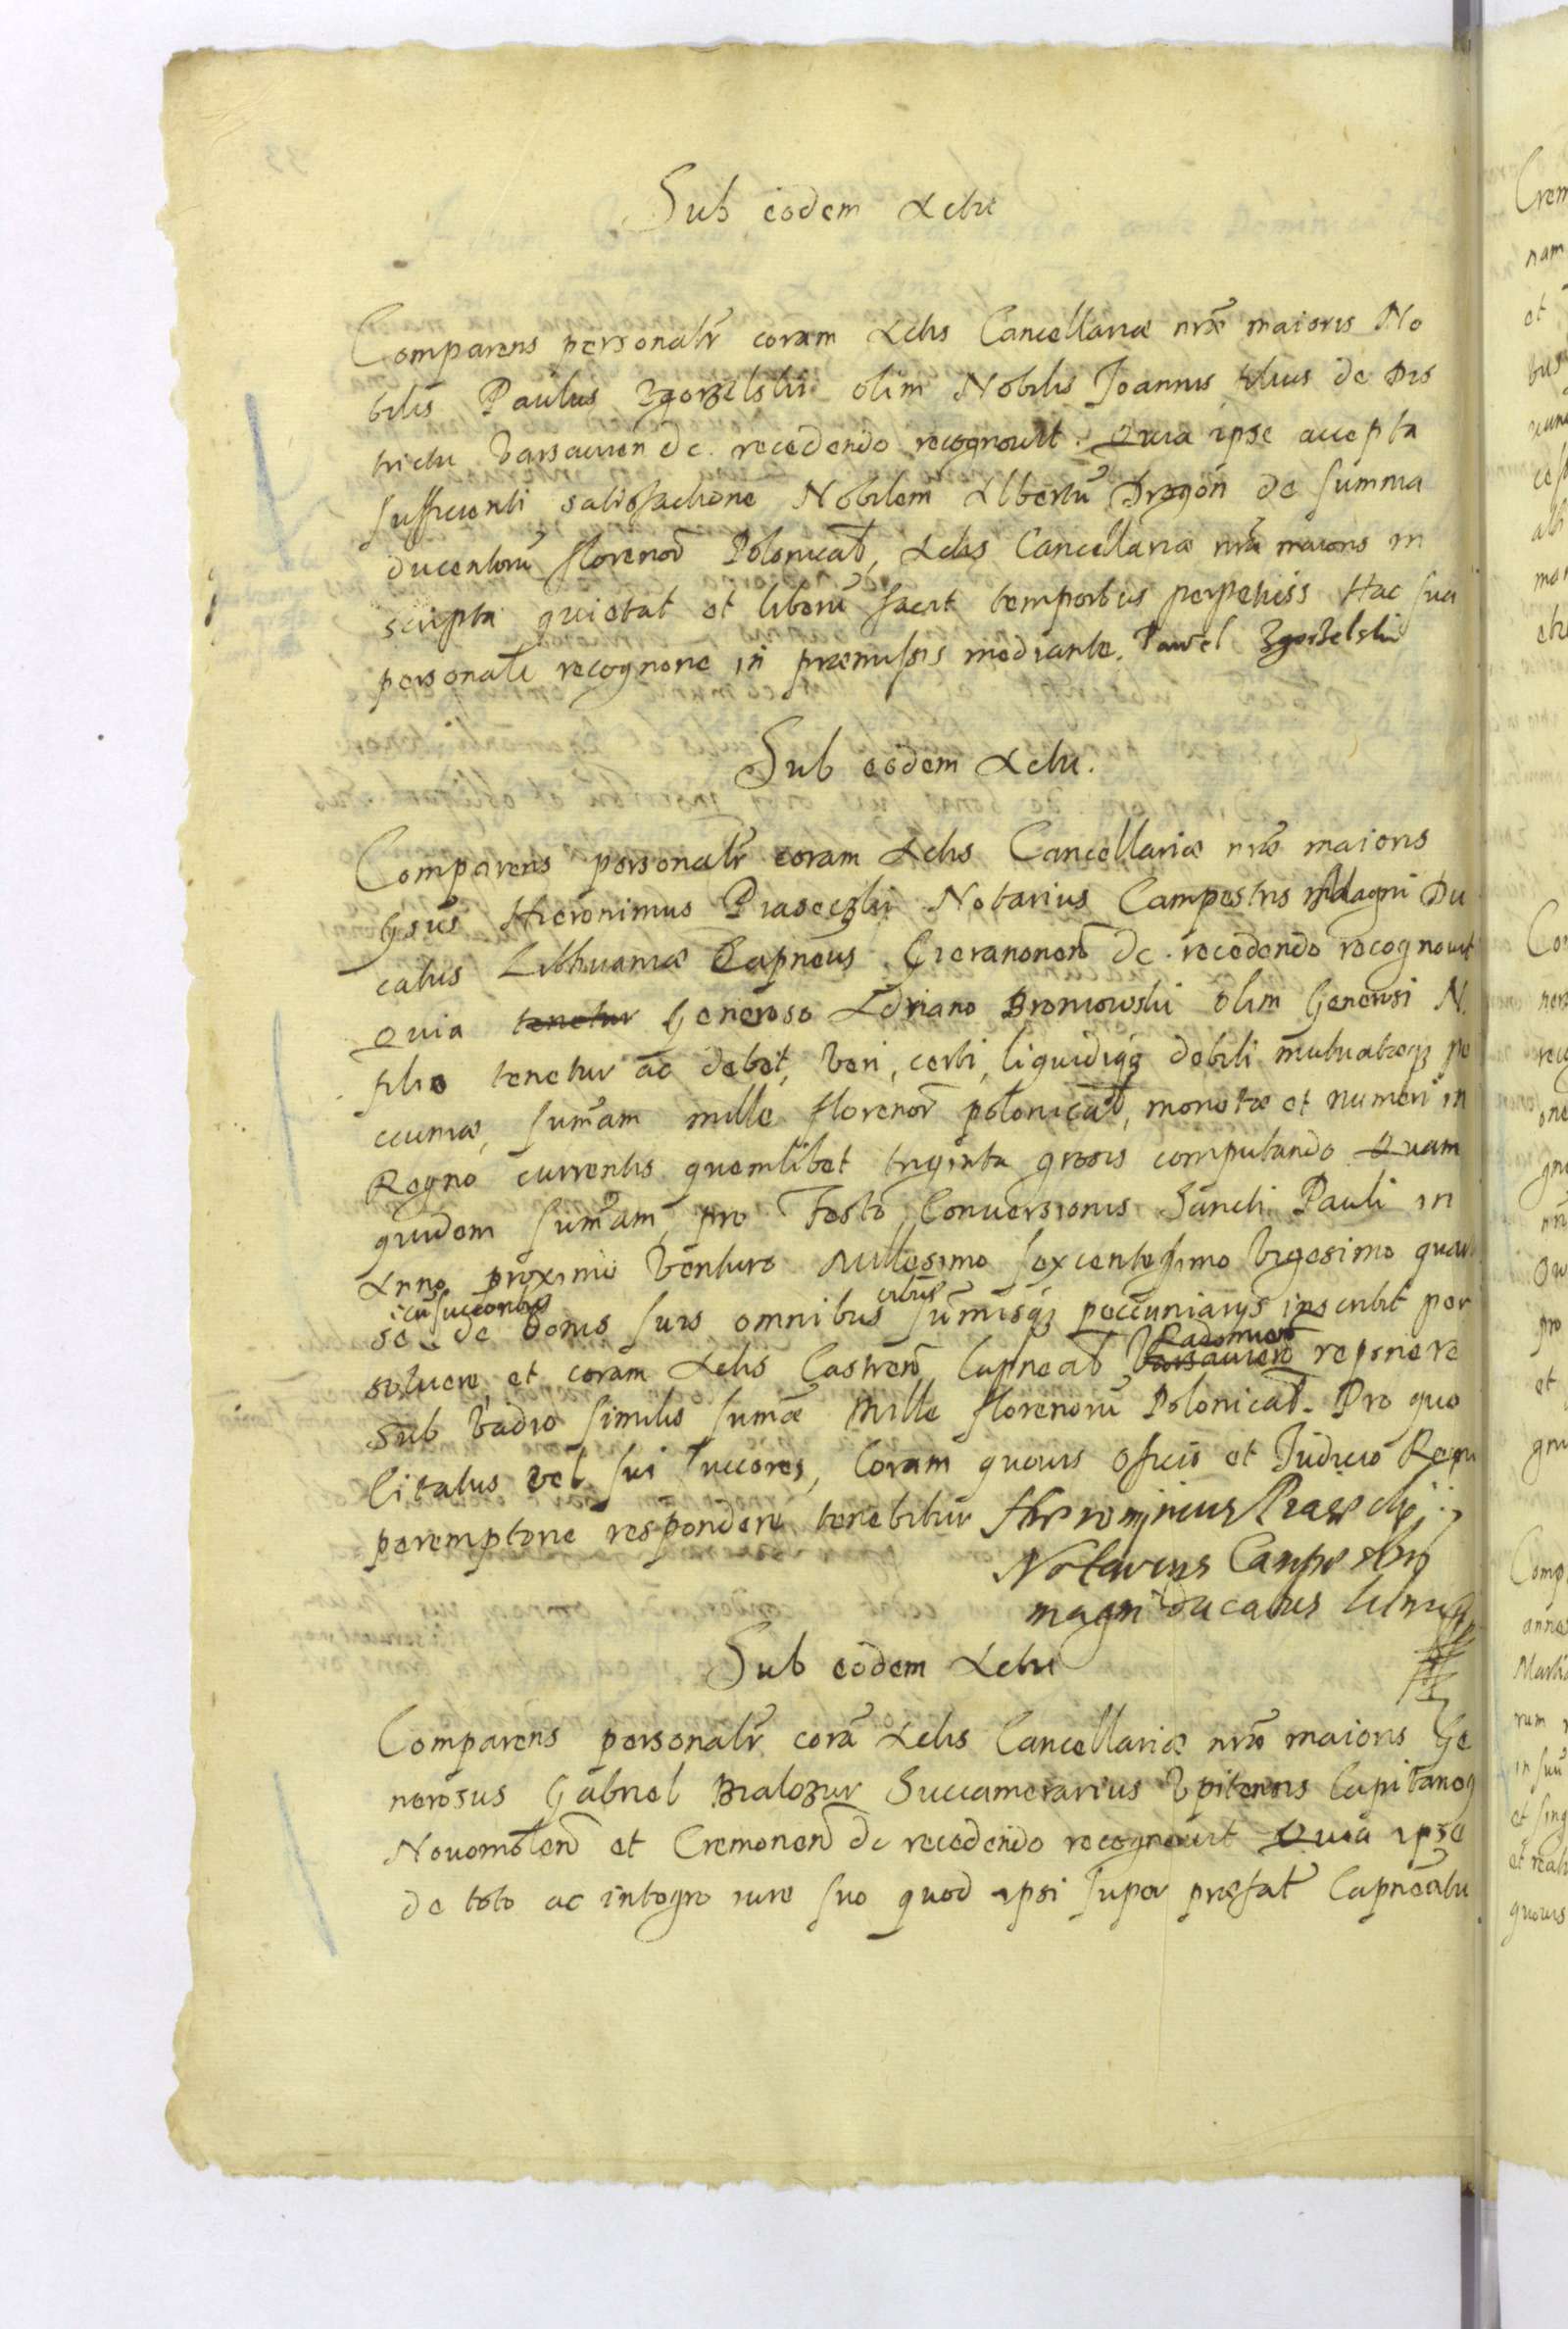 Sub eodem Actu
Comparens personalr coram Actis Cancellariæ nræ maioris No
bilis Paulus Zgorzelski olim Nobilis Joannis filius de Dis
trictu Varsavien de recedendo recognovit. Quia ipse accepta
sufficienti satisfactione Nobilem Albertu Dragon de summa
ducentoru florenor Polonicat, Actis Cancellariæ nræ maioris in
scripta quietat et liberu facit temporibus perpetuis Hac sua
personali recognone in præmissis mediante. Pawel Zgorzelski
Sub eodem Actu.
Comparens personalr coram Actis Cancellariæ nræ maioris
Gsus Hieronimus Piaseczki Notarius Campestris Magni Du
catus Lithuaniæ Capneus Gieranonen de recedendo recognovit
Quia tenetur Generoso Adriano Broniowski olim Generosi N.
filio tenetur ac debet, veri, certi, liquidiq debiti mutuatæq pe
ccuniæ, sumam mille florenor polonicat, monetæ et numeri in
Regno currentis quemlibet triginta grosis computando Quam
quidem sumam, pro Festo Conversionis Sancti Pauli in
Anno proximo venturo Millesimo sexcentesimo vigesimo quar
cu succoribus
se de bonis suis omnibus sumisq peccuniarijs inscribit per
Radomien
solvere, et coram Actis Castren Capneat Varsavien reponere
sub vadio similis sumæ Mille florenoru Polonicat. Pro quo
Citatus vel sui succores, Coram quovis Oficio et Judicio Regni
peremptorie respondere tenebitur Hieronimus Piaseczki
Notarius Campestris
magni ducatus
Sub eodem Actu
Comparens personalr cora Actis Cancellariæ nræ maioris Ge
nerosus Gabriel Bialozur Succamerarius Upitensis Capitaneq
Novomolen et Cremonen de recedendo recognovit Quia ipse
de toto ac integro iure suo quod ipsi super præfat Capneatu